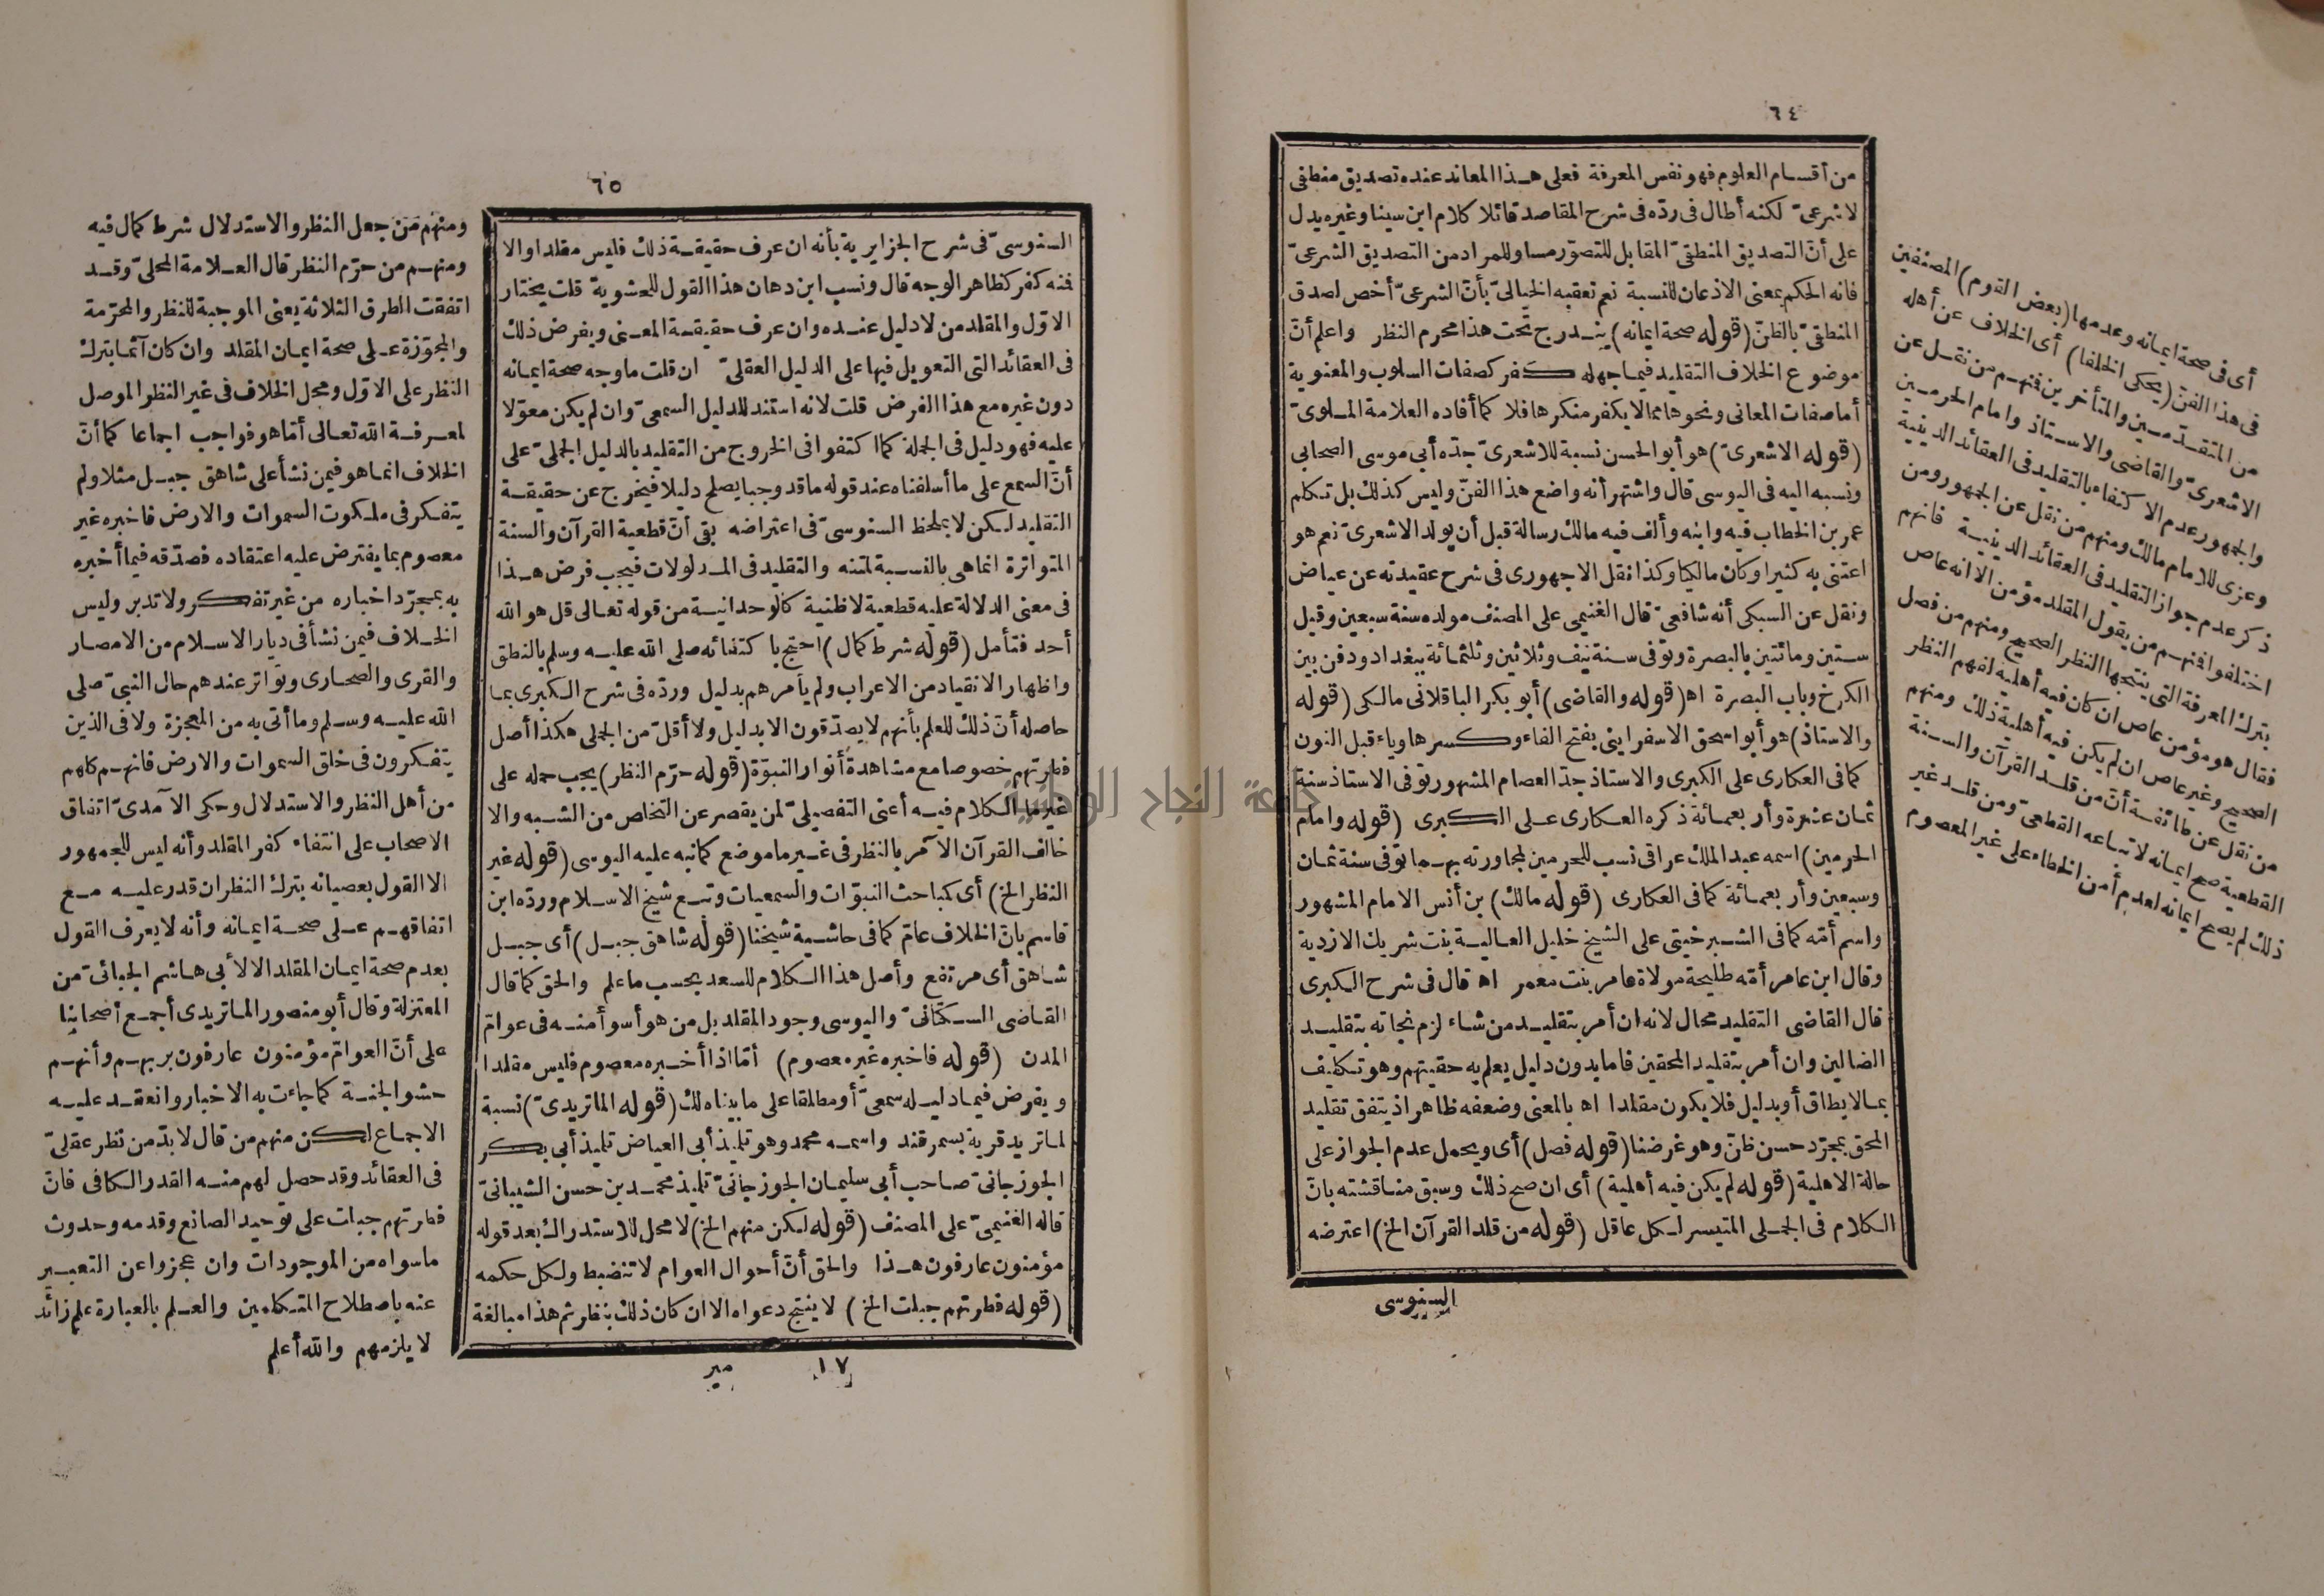 ٦٤
من أقسام العلوم فهو نفس المعرفة فعلى هذا المعاند عنده تصديق منطقى
لا شرعىّ لكنه أطال فى ردّه فى شرح المقاصد قائلا كلام ابن سينا وغيره يدل
على أنّ التصديق المنطقىّ المقابل للتصوّر مساو للمراد من التصديق الشرعىّ
فانه الحكم بمعنى الاذعان للنسبة نعم تعقبه الخيالىّ بأنّ الشرعىّ أخص لصدق
المنطقىّ بالظنّ (قوله صحة ايمانه) يندرج تحت هذا محرم النظر واعلم أنّ
موضوع الخلاف التقليد فيما جهله كفر كصفات السلوب والمعنوية
أما صفات المعانى ونحوها مما لا يكفر منكرها فلا كما أفاده العلامة الملوىّ
(قوله الاشعرىّ) هو أبو الحسن نسبة للاشعرىّ جدّه أبى موسى الصحابى
ونسبه اليه فى اليوسى قال واشتهر أنه واضع هذا الفنّ وليس كذلك بل تكلم
عمر بن الخطاب فيه وابنه وألف فيه مالك رسالة قبل أن يولد الاشعرىّ نعم هو
اعتنى به كثيرا وكان مالكيا وكذا نقل الاجهورى فى شرح عقيدته عن عياض
ونقل عن السبكى أنه شافعىّ قال الغنيمى على المصنف مولده سنة سبعين وقيل
ستين ومائتين بالبصرة وتوفى سنة نيف وثلاثين وثلثمائة ببغداد ودفن بين
الكرخ وباب البصرة اه (قوله والقاضى) أبو بكر الباقلانى مالكى (قوله
والاستاذ) هو أبو اسحق الاسفراينى بفتح الفاء وكسرها وياء قبل النون
كما فى العكارى على الكبرى والاستاذ جدّ العصام المشهور توفى الاستاذ سنة
ثمان عشرة وأربعمائة ذكره العكارى على الكبرى (قوله وامام
الحرمين) اسمه عبد الملك عراقى نسب للحرمين لمجاورته بهما توفى سنة ثمان
وسبعين وأربعمائة كما فى العكارى (قوله مالك) بن أنس الامام المشهور
واسم أمّه كما فى الشبرخيتى على الشيخ خليل العالية بنت شريك الازدية
وقال ابن عامر أمّه طليحة مولاة عامر بنت معمر اه قال فى شرح الكبرى
قال القاضى التقليد محال لانه ان أمر بتقليد من شاء لزم نجاته بتقليد
الضالين وان أمر بتقليد المحقين فاما بدون دليل يعلم به حقيتهم وهو تكليف
بما لا يطاق أو بدليل فلا يكون مقلدا اه بالمعنى وضعفه ظاهر اذ يتفق تقليد
المحق بمجرّد حسن ظنّ وهو غرضنا (قوله فصل) أى ويحمل عدم الجواز على
حالة الاهلية (قوله لم يكن فيه أهلية) أى ان صح ذلك وسبق مناقشته بانّ
الكلام فى الجملى المتيسر لكل عاقل (قوله من قلد القرآن الخ) اعترضه
السنوسى
أى فى صحة ايمانه وعدمها (بعض القوم) المصنفين
فى هذا الفنّ (يحكى الخلفا) أى الخلاف عن أهله
من المتقدّمين والمتأخرين فمنهم من نقل عن
الاشعرىّ والقاضى والاستاذ وامام الحرمين
والجمهور عدم الاكتفاء بالتقليد فى العقائد الدينية
وعزى للامام مالك ومنهم من نقل عن الجمهور ومن
ذكر عدم جواز التقليد فى العقائد الدينية فانهم
اختلفوا فمنهم من يقول المقلد مؤمن الا انه عاص
بترك المعرفة التى ينتجها النظر الصحيح ومنهم من فصل
فقال هو مؤمن عاص ان كان فيه أهلية لفهم النظر
الصحيح وغير عاص ان لم يكن فيه أهلية ذلك ومنهم
من نقل عن طائفة أنّ من قلد القرآن والسنة
القطعية صح ايمانه لاتباعه القطعىّ ومن قلد غير
ذلك لم يصح ايمانه لعدم أمن الخطاء على غير المعصوم
٦٥
السنوسىّ فى شرح الجزايرية بأنه ان عرف حقيقة ذلك فليس مقلدا والا
فمنه كفر كظاهر الوجه قال ونسب ابن دهان هذا القول للحشوية قلت يختار
الاوّل والمقلد من لا دليل عنده وان عرف حقيقة المعنى ويفرض ذلك
فى العقائد التى التعويل فيها على الدليل العقلىّ ان قلت ما وجه صحة ايمانه
دون غيره مع هذا الفرض قلت لانه استند للدليل السمعىّ وان لم يكن معوّلا
عليه فهو دليل فى الجملة كما اكتفوا فى الخروج من التقليد بالدليل الجملىّ على
أنّ السمع على ما أسلفناه عند قوله ما قد وجبا يصلح دليلا فيخرج عن حقيقة
التقليد لكن لا بملحظ السنوسىّ فى اعتراضه بقى أنّ قطعية القرآن والسنة
المتواترة انما هى بالنسبة لمتنه والتقليد فى المدلولات فيجب فرض هذا
فى معنى الدلالة عليه قطعية لا ظنية كالوحدانية من قوله تعالى قل هو الله
أحد فتأمل (قوله شرط كمال) احتج باكتفائه صلى الله عليه وسلم بالنطق
واظهار الانقياد من الاعراب ولم يأمرهم بدليل وردّه فى شرح الكبرى بما
حاصله أنّ ذلك للعلم بأنهم لا يصدّقون الا بدليل ولا أقلّ من الجملى هكذا أصل
فطرتهم خصوصا مع مشاهدة أنوار النبوّة (قوله حرّم النظر) يجب حمله على
غير ما الكلام فيه أعنى التفصيلىّ لمن يقصر عن التخلص من الشبه والا
خالف القرآن الآمر بالنظر فى غير ما موضع كما نبه عليه اليوسى (قوله غير
النظر الخ) أى كمباحث النبوّات والسمعيات وتبع شيخ الاسلام وردّه ابن
قاسم بانّ الخلاف عامّ كما فى حاشية شيخنا (قوله شاهق جبل) أى جبل
شاهق أى مرتفع وأصل هذا الكلام للسعد بحسب ما علم والحق كما قال
القاضى السكتانىّ واليوسى وجود المقلد بل من هو أسوأ منه فى عوامّ
المدن (قوله فاخبره غير معصوم) أمّا اذا أخبره معصوم فليس مقلدا
ويفرض فيما دليله سمعىّ أو مطلقا على ما بيناه لك (قوله الماتريدىّ) نسبة
لماتريد قرية بسمرقند واسمه محمد وهو تلميذ أبى العياض تلميذ أبى بكر
الجوزجانىّ صاحب أبى سليمان الجوزجانىّ تلميذ محمد بن حسن الشيبانىّ
قاله الغنيمىّ على المصنف (قوله لكن منهم الخ) لا محل للاستدراك بعد قوله
مؤمنون عارفون هذا والحق أنّ أحوال العوام لا تنضبط ولكل حكمه
(قوله فطرتهم جبلت الخ) لا ينتج دعواه الا ان كان ذلك بنظر ثم هذا مبالغة
١٧ مير
ومنهم من جعل النظر والاستدلال شرط كمال فيه
ومنهم من حرّم النظر قال العلامة المحلىّ وقد
اتفقت الطرق الثلاثة يعنى الموجبة للنظر والمحرّمة
والمجوّزة على صحة ايمان المقلد وان كان آثما بترك
النظر على الاوّل ومحل الخلاف فى غير النظر الموصل
لمعرفة الله تعالى أمّا هو فواجب اجماعا كما أنّ
الخلاف انما هو فيمن نشأ على شاهق جبل مثلا ولم
يتفكر فى ملكوت السموات والارض فاخبره غير
معصوم بما يفترض عليه اعتقاده فصدّقه فيما أخبره
به بمجرّد اخباره من غير تفكر ولا تدبر وليس
الخلاف فيمن نشأ فى ديار الاسلام من الامصار
والقرى والصحارى وتواتر عندهم حال النبىّ صلى
الله عليه وسلم وما أتى به من المعجزة ولا فى الذين
يتفكرون فى خلق السموات والارض فانهم كلهم
من أهل النظر والاستدلال وحكى الآمدىّ اتفاق
الاصحاب على انتفاء كفر المقلد وأنه ليس للجمهور
الا القول بعصيانه بترك النظر ان قدر عليه مع
اتفاقهم على صحة ايمانه وأنه لا يعرف القول
بعدم صحة ايمان المقلد الا لأبى هاشم الجبائىّ من
المعتزلة وقال أبو منصور الماتريدى أجمع أصحابنا
على أنّ العوامّ مؤمنون عارفون بربهم وأنهم
حشو الجنة كما جاءت به الاخبار وانعقد عليه
الاجماع لكن منهم من قال لا بدّ من نظر عقلىّ
فى العقائد وقد حصل لهم منه القدر الكافى فانّ
فطرتهم جبلت على توحيد الصانع وقدمه وحدوث
ما سواه من الموجودات وان عجزوا عن التعبير
عنه باصطلاح المتكلمين والعلم بالعبارة علم زائد
لا يلزمهم والله أعلم
جامعة النجاح الوطنية